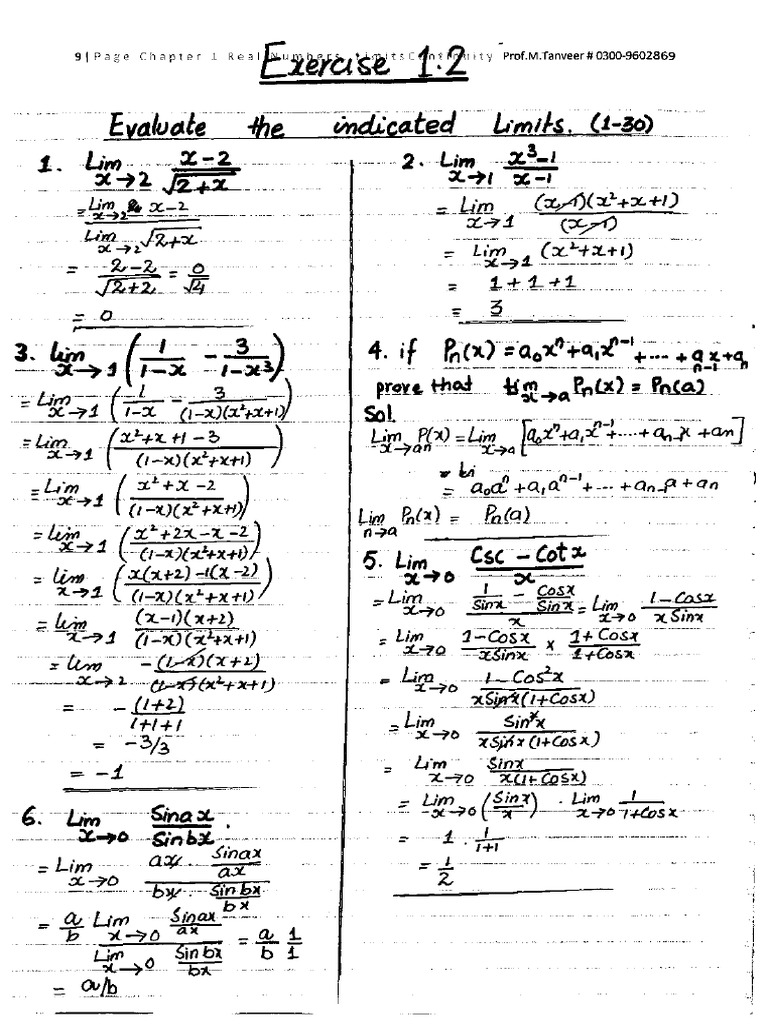 9 | Page Chapter 1 Real Numbers, Limits Continuity Prof.M.Tanveer # 0300-9602869
Exercise 1.2
Evaluate the indicated Limits. (1-30)
1. Lim x→2 (x-2)/√(2+x)
= Lim x→2 x-2 / Lim x→2 √(2+x)
= (2-2)/√(2+2) = 0/√4
= 0
2. Lim x→1 (x³-1)/(x-1)
= Lim x→1 (x-1)(x²+x+1)/(x-1)
= Lim x→1 (x²+x+1)
= 1+1+1
= 3
3. Lim x→1 (1/(1-x) - 3/(1-x³))
= Lim x→1 (1/(1-x) - 3/((1-x)(x²+x+1)))
= Lim x→1 ((x²+x+1-3)/((1-x)(x²+x+1)))
= Lim x→1 ((x²+x-2)/((1-x)(x²+x+1)))
= Lim x→1 ((x²+2x-x-2)/((1-x)(x²+x+1)))
= Lim x→1 ((x(x+2)-1(x-2))/((1-x)(x²+x+1)))
= Lim x→1 (x-1)(x+2)/((1-x)(x²+x+1))
= Lim x→2 -(1-x)(x+2)/((1-x)(x²+x+1))
= -(1+2)/(1+1+1)
= -3/3
= -1
4. if Pn(x) = a₀xⁿ+a₁xⁿ⁻¹+....+aₙ₋₁x+aₙ
prove that Lim x→a Pn(x) = Pn(a)
Sol.
Lim x→an P(x) = Lim x→a [a₀xⁿ+a₁xⁿ⁻¹+....+aₙ₋₁x+an]
= a₀aⁿ+a₁aⁿ⁻¹+...+aₙ₋₁a+an
Lim n→a Pn(x) = Pn(a)
5. Lim x→0 (Csc - Cotx)/x
= Lim x→0 (1/Sinx - Cosx/Sinx)/x = Lim x→0 (1-Cosx)/(xSinx)
= Lim x→0 (1-Cosx)/(xSinx) × (1+Cosx)/(1+Cosx)
= Lim x→0 (1-Cos²x)/(xSinx(1+Cosx))
= Lim x→0 Sin²x/(xSinx(1+Cosx))
= Lim x→0 Sinx/(x(1+Cosx))
= Lim x→0 (Sinx/x) . Lim x→0 1/(1+Cosx)
= 1 . 1/(1+1)
= 1/2
6. Lim x→0 Sinax/Sinbx.
= Lim x→0 (ax . Sinax/ax)/(bx . Sinbx/bx)
= a/b (Lim x→0 Sinax/ax)/(Lim x→0 Sinbx/bx) = a/b 1/1
= a/b